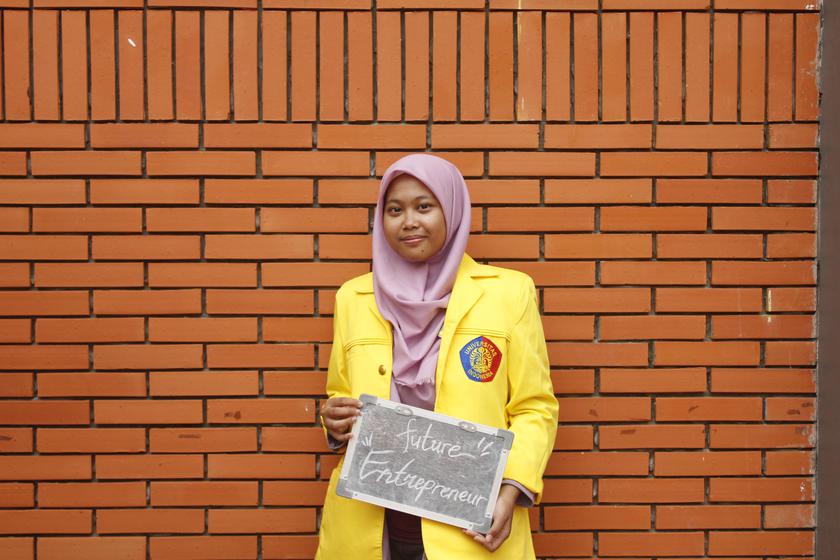 UNIVERSITAS
INDONESIA
"future"
Entrepreneur